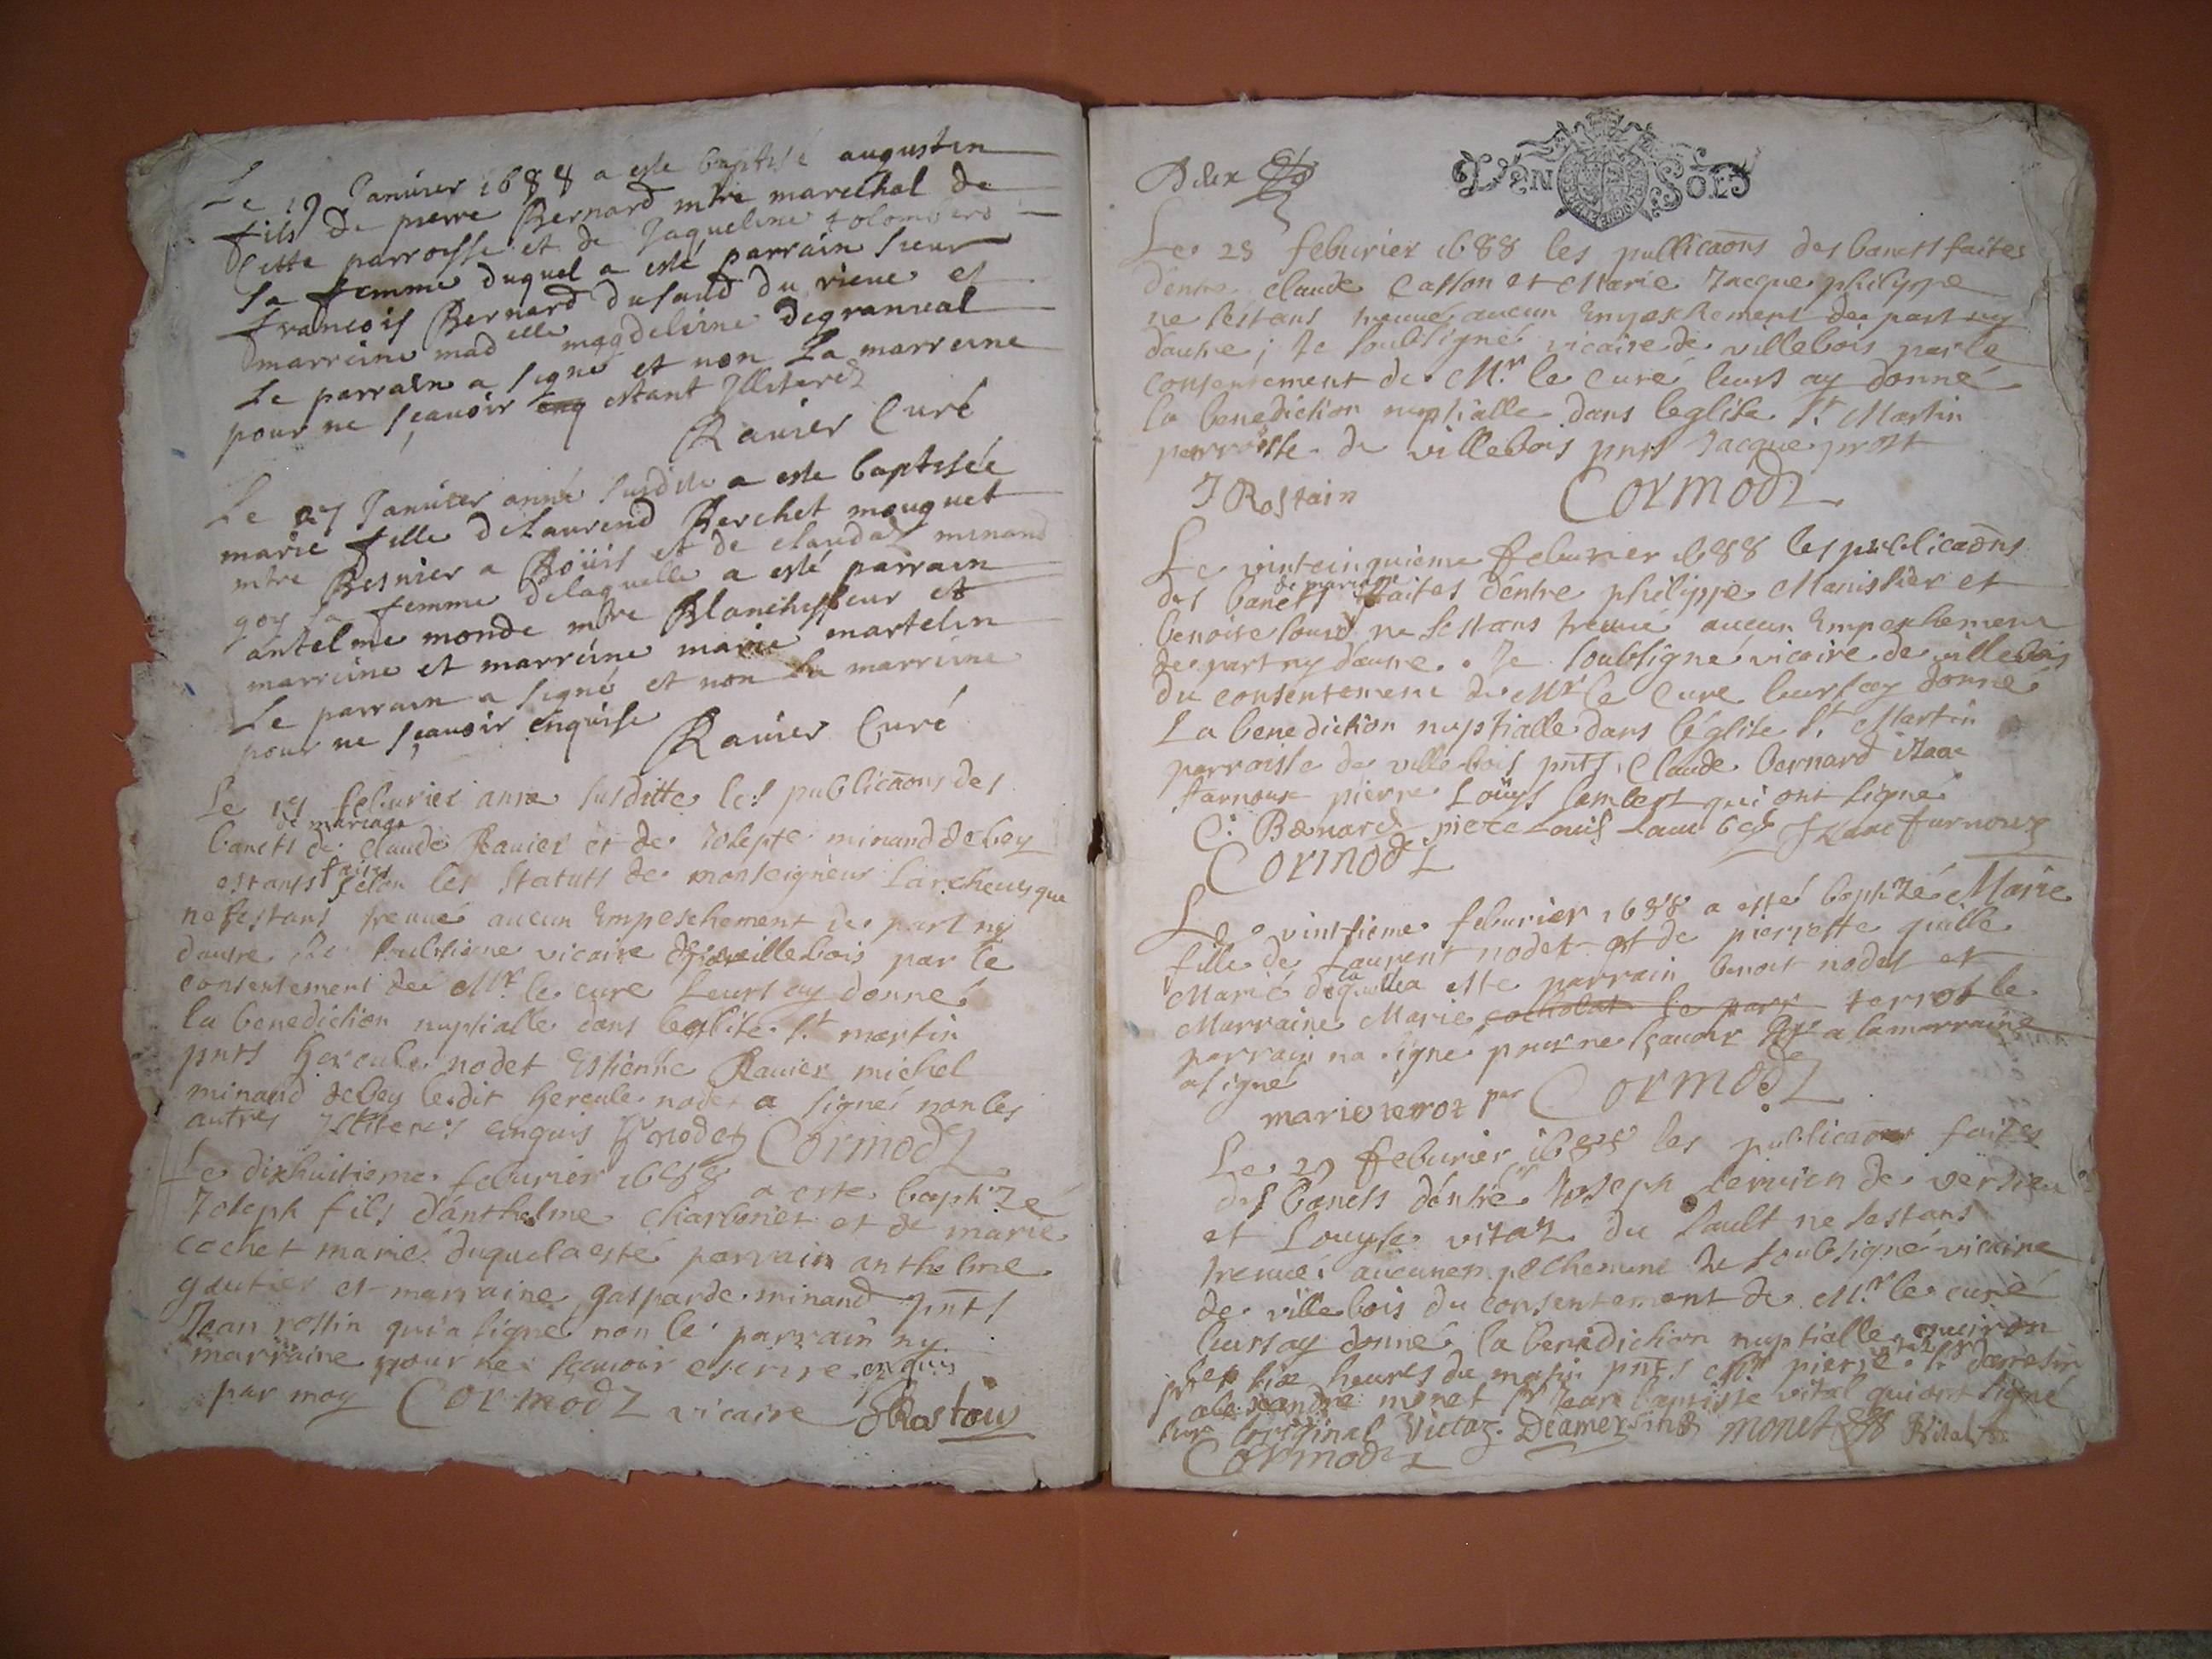 Le 19 Januier 1688 a este baptisé augustin
fils de pierre Bernard mtre marechal de
Cette parroisse et de Jaqueline
sa femme duquel a esté parrain sieur
francois Bernard du saud du rieue et
marreine mad elle magdeleine degranual
Le parrain a signé et non La marreine
pour ne sçauoir estant Illiteréz
Rauier Curé
Le 27 Januier anné susdite a este baptisée
marie fille de Laurend Berchet mouquet
mtre Besnier a Boüis et de claudaz minand
goy sa femme delaquelle a esté parrain
antelme monde mtre Blanchisseur et
marreine et marreine marie martelin
Le parrain a signé et non la marreine
pour ne sçauoir enquise
Rauier Curé
Le feburier anné susditte les publicaōns des
de mariage
bancts de Claude Rauier et de Josepte minand debey
faites
estants selon les statuts de monseigneur Larcheuesque
ne sestans treuué aucun Empeschement de part ny
dautre Je soubsigne vicaire de villebois par le
consentement de Mr. le cure Leurs ay donné
la benediction nuptialle dans leglise St. martin
pnts hercule nodet Estienne Rauier michel
minand debey ledit hercule nodet a signé non les
autres Illiterés enquis h nodet Cormodz
Le dixhuitieme feburier 1688 a este baptizé
Joseph fils d'anthelme charbonet et de marie
cochet mariés duquel a esté parrain anthelme
gautier et marraine gasparde minand pnts
Jean rostin qui a signé non le parrain ny
marraine pour ne sçauoir escrire enquis
par moy Cormodz vicaire J Rostain
Deux
VN SOLS
Le 23 feburier 1688 les pullicaōns des bancts faites
dentre claude Casson et Marie Jacque philippe
ne sestans treuué aucun Empeschement de part ny
dautre; Je soubsigné vicaire de villebois par le
consentement de Mr. le Curé leurs ay donné
la benediction nuptialle dans leglise St. Martin
parroisse de villebois pnts Jacque prost
J Rostain Cormodz
Le vintcinquieme feburier 1688 les publicaōns
de mariage
des bancts faites dentre philippe Manissier et
benoise lourd ne sestans treuué aucun Empeschement
de part ny d'autre. Je soubsigné vicaire de villebois
du consentement de Mr le Cure leurs ay donné
La benediction nuptialle dans l'église St. Martin
parroisse de villebois pnts Claude bernard isaac
farnoux pierre Loüys lambert qui ont signé
C. Bernard piere Louis Isaac furnoux
Cormodz
Le vintsieme feburier 1688 a esté baptizé Marie
fille de Laurent nodet et de pierrette guille
Marié de laquella esté parrain benoit nodet et
Marraine Marie cocholat le parr terrot le
parrain na signé pour ne sçauoir la marraine
a signé
marie terroz par Cormodz
Le 29 feburier 1688 les publicaōns faites
des bancts dentre Joseph Seruien de versieu
et Louyse vitaz du sault ne sestans
treuué aucun enpechement Je soubsigné vicaire
de villebois du consentement de Mr. le curé
leurs ay donné la benediction nuptialle enuiron
les six heures du matin pnts Mr pierre
alexandre monet Sr Jean baptiste vital qui ont signé
sur loriginal Vitaz Deamerzin monet
Cormodz